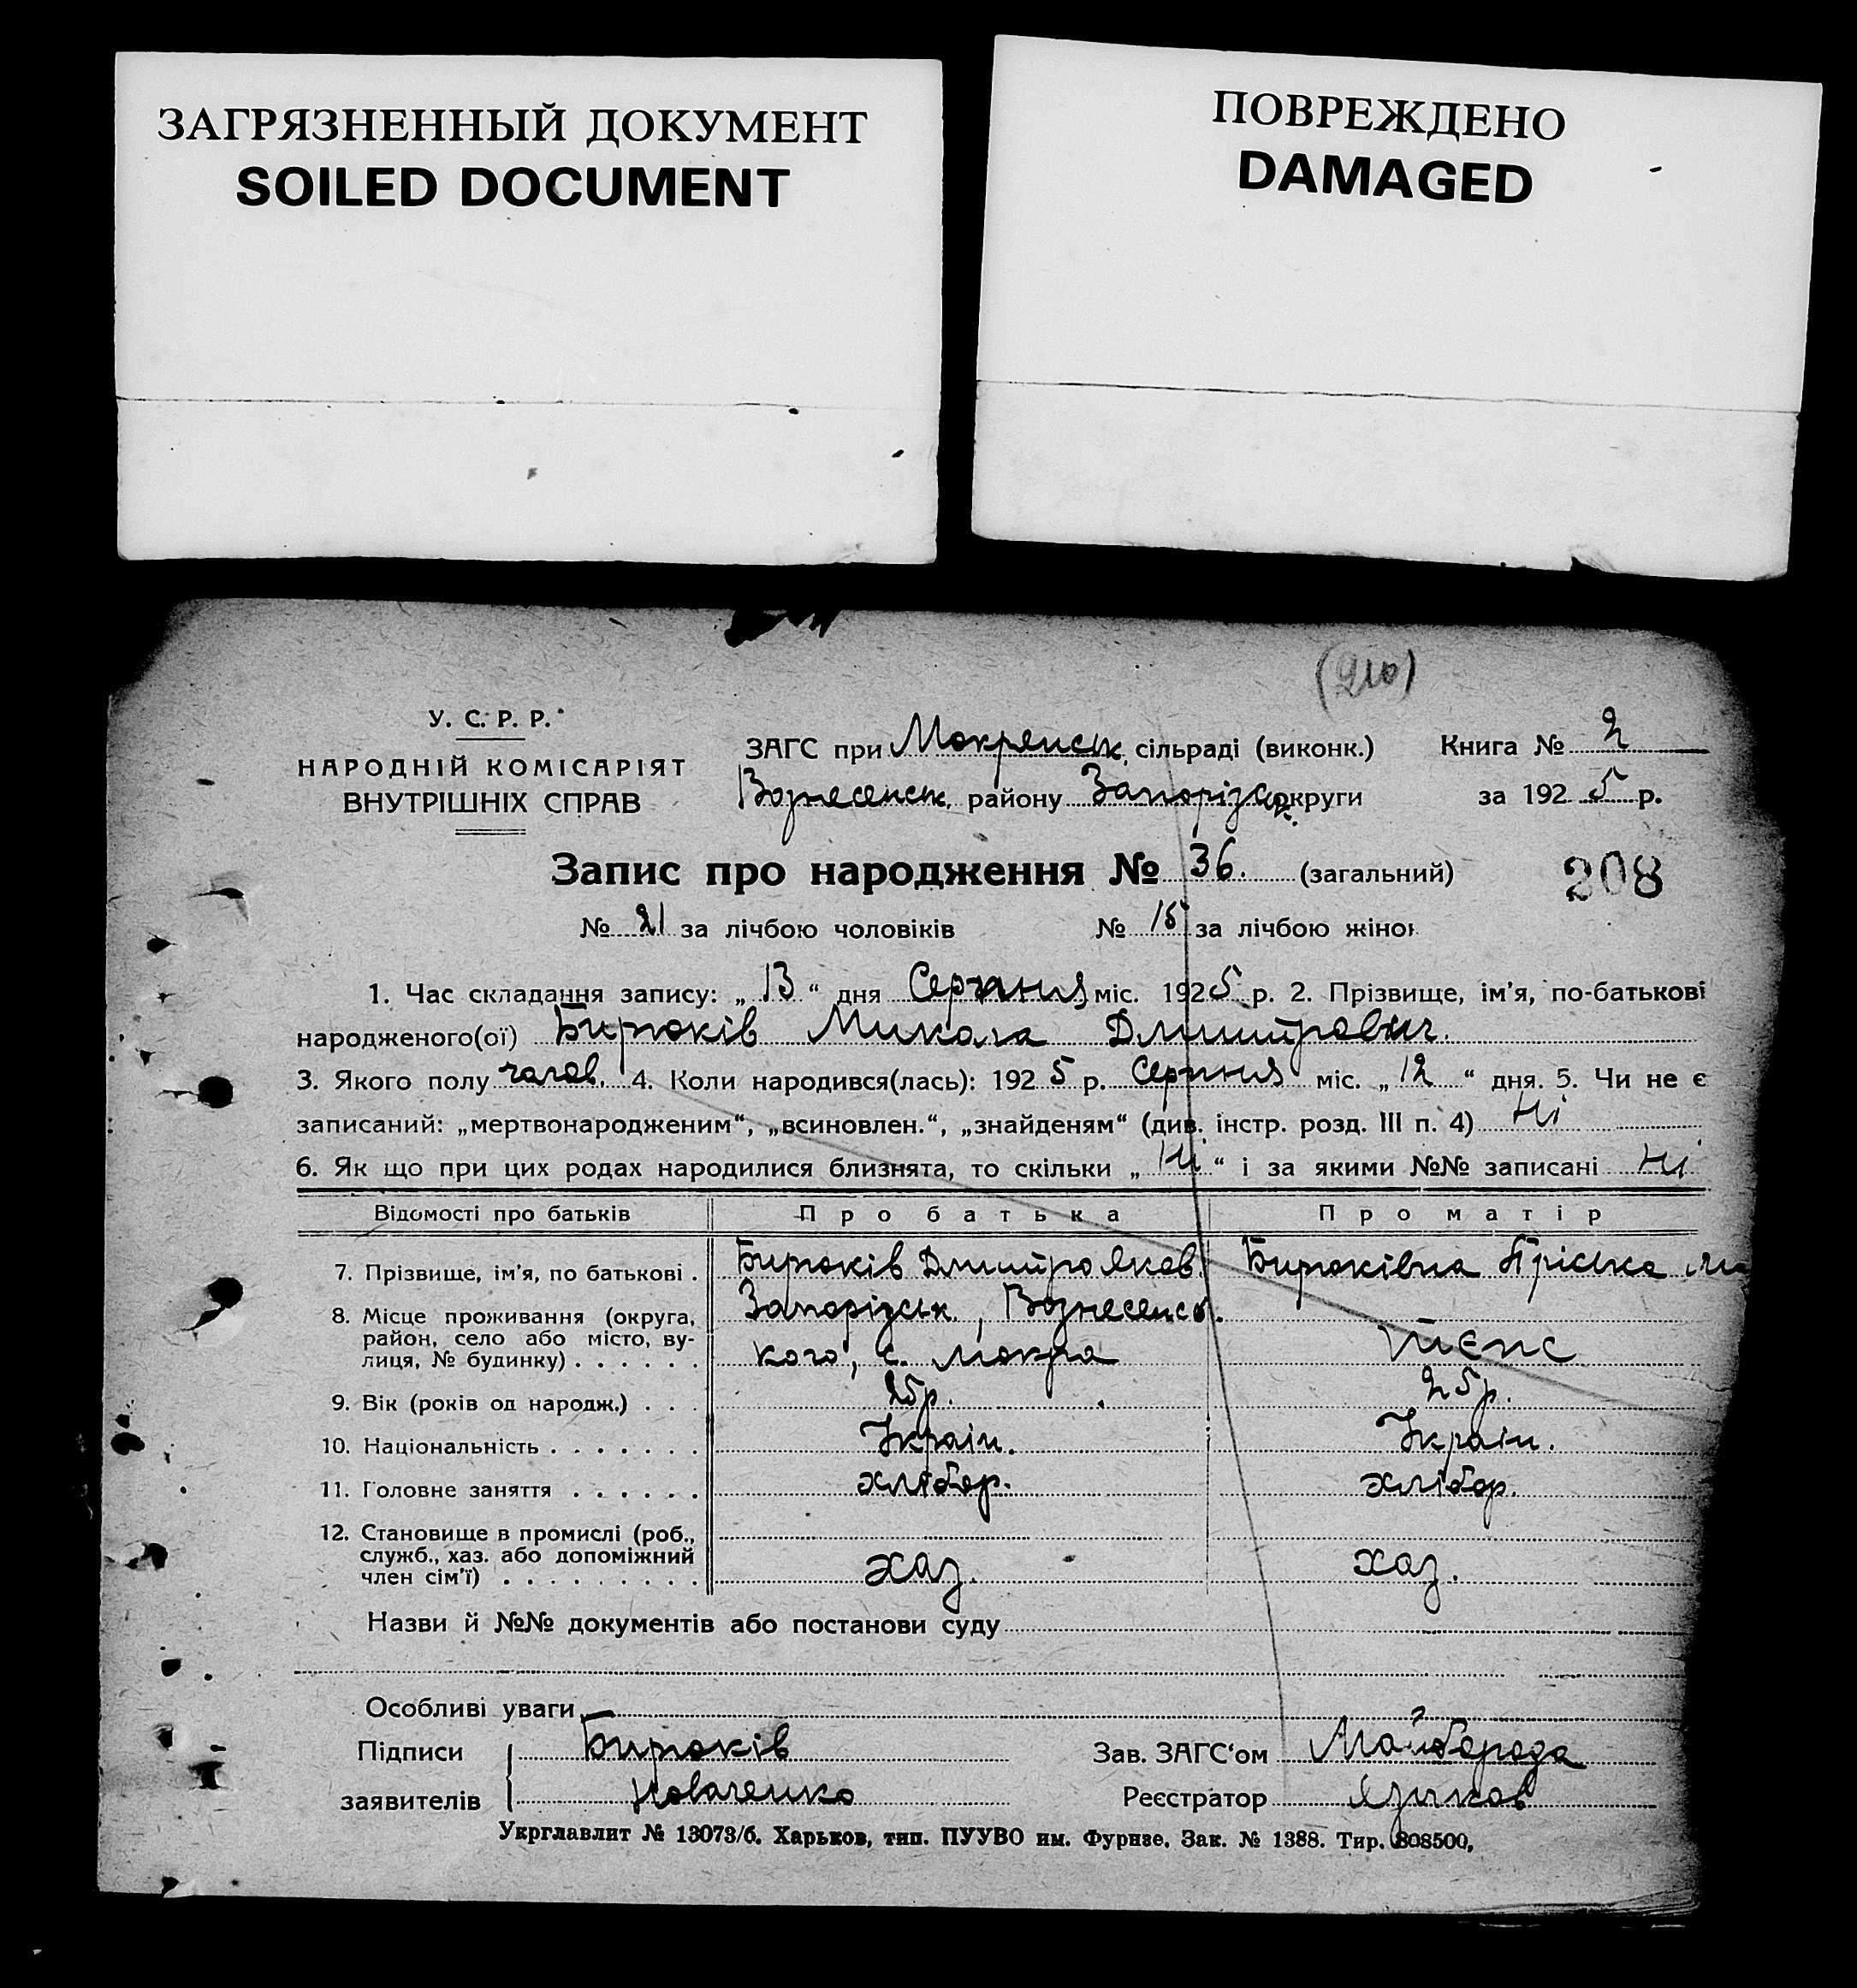 ЗАГРЯЗНЕННЫЙ ДОКУМЕНТ
SOILED DOCUMENT
ПОВРЕЖДЕНО
DAMAGED
(210)
У. С. Р. Р.
НАРОДНІЙ КОМІСАРІЯТ
ВНУТРІШНІХ СПРАВ
ЗАГС при Мокрянськ. сільраді (виконк.) Книга № 2
Вознесенськ. району Запорізьк. округи за 1925 р.
Запис про народження № 36. (загальний)
208
№ 21 за лічбою чоловіків № 15 за лічбою жінок
1. Час складання запису: „13“ дня Серпня міс. 1925 р. 2. Прізвище, ім’я, по-батькові
народженого(ої) Бирюків Микола Дмитрович.
3. Якого полу 4. Коли народився(лась): 1925 р. Серпня міс. „12“ дня. 5. Чи не є
записаний: „мертвонародженим“, „всиновлен.“, „знайденям“ (див. інстр. розд. III п. 4) Ні
6. Як що при цих родах народилися близнята, то скільки „Ні“ і за якими №№ записані Ні
Відомості про батьків Про батька Про матір
7. Прізвище, ім’я, по батькові . Бирюків Дмитро Яков. Бирюківна Пріська
8. Місце проживання (округа, Запорізьк., Вознесенсь
район, село або місто, ву-
лиця, № будинку) . . . . . . кого, с. Мокра
9. Вік (років од народж.) . . . 25 р. 25 р.
10. Національність . . . . . . . Україн. Україн.
11. Головне заняття . . . . . . хлібор. хлібор.
12. Становище в промислі (роб.,
служб., хаз. або допоміжний
член сім’ї) . . . . . . . . . хаз. хаз.
Назви й №№ документів або постанови суду
Особливі уваги
Підписи Бирюків Зав. ЗАГС‘ом Майборода
заявителів Реєстратор Язиков
Укрглавлит № 13073/б. Харьков, тип. ПУУВО им. Фрунзе. Зак. № 1388. Тир. 808500,